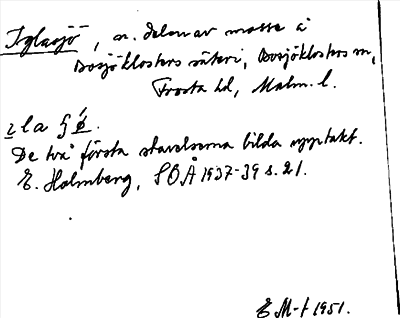 Iglasjö, n. delen av mosse å
Bosjöklosters säteri, Bosjöklosters sn,
Frosta hd, Malm. l.
ɩla § ǿ.
De två första stavelserna bilda upptakt.
E. Holmberg, SOÅ 1937-39 s. 21.
E M-f 1951.